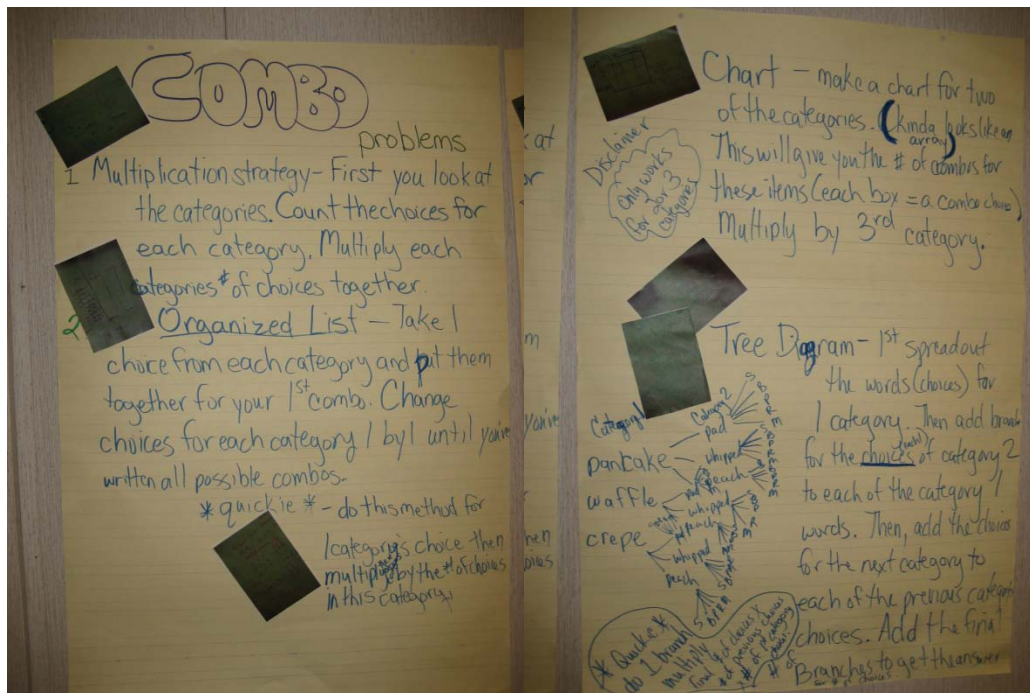 COMBO
problems
1 Multiplication strategy - First you look at
the categories. Count the choices for
each category. Multiply each
categories # of choices together.
2 Organized List - Take 1
choice from each category and put them
together for your 1st combo. Change
choices for each category 1 by 1 until you've
written all possible combos.
*quickie* - do this method for
1 category's choice then
multiply by the # of choices
in this category.
Chart - make a chart for two
of the categories. (kinda looks like an
array)
This will give you the # of combos for
these items (each box = a combo choice)
Multiply by 3rd category.
Disclaimer
only works
for 2 or 3
categories
Tree Diagram - 1st spread out
the words (choices) for
1 category. Then add branches
for the choices (each) of category 2
to each of the category 1
words. Then, add the choices
for the next category to
each of the previous categories
choices. Add the final
Branches to get the answer
for # of choices
Category 1
Category 2
pancake
waffle
crepe
pad
whipped
peach
whipped
peach
whipped
peach
*Quickie*
do 1 branch
multiply
final # of choices x
# of previous choices
x # of 1st category
choices